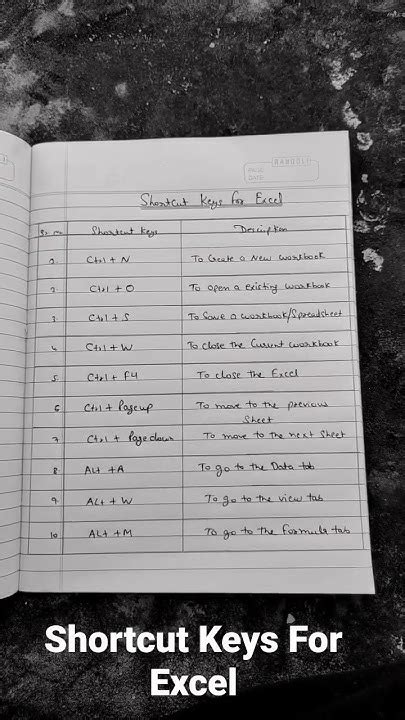 RANGOLI
PAGE
DATE
Shortcut Keys for Excel
Sr. no. Shortcut keys Description
1. Ctrl + N To Create a New workbook
2. Ctrl + O To open a existing workbook
3. Ctrl + S To Save a workbook/Spreadsheet
4. Ctrl + W To close the Current workbook
5. Ctrl + F4 To close the Excel
6. Ctrl + Pageup To move to the previous
Sheet
7. Ctrl + Page down To move to the next Sheet
8. ALt + A To go to the Data tab
9. ALt + W To go to the view tab
10 ALt + M To go to the formula tab
Shortcut Keys For
Excel